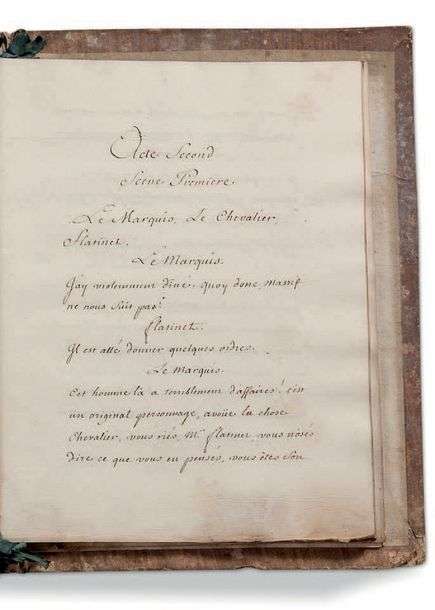 Acte Second
Scene Premiere.
Le Marquis, Le Chevalier,
Flatinet.
Le Marquis.
J'ay violemment diné, quoy donc Massif
ne nous suit pas!
flatinet.
Il est allé donner quelques ordres.
Le Marquis.
Cet homme là a terriblement d'affaires! c'est
un original personnage, avoüe la chose
Chevalier, vous riés, Mr. flatinet vous n'osés
dire ce que vous en pensés, vous êtes son